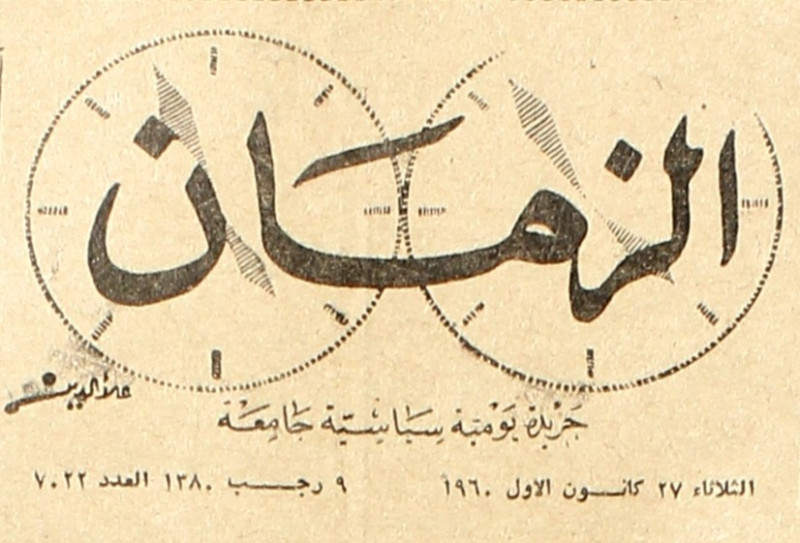 الزمان
علاء الدين
جريدة يومية سياسية جامعة
الثلاثاء ٢٧ كانون الاول ١٩٦٠ ٩ رجب ١٣٨٠ العدد ٧٠٢٢